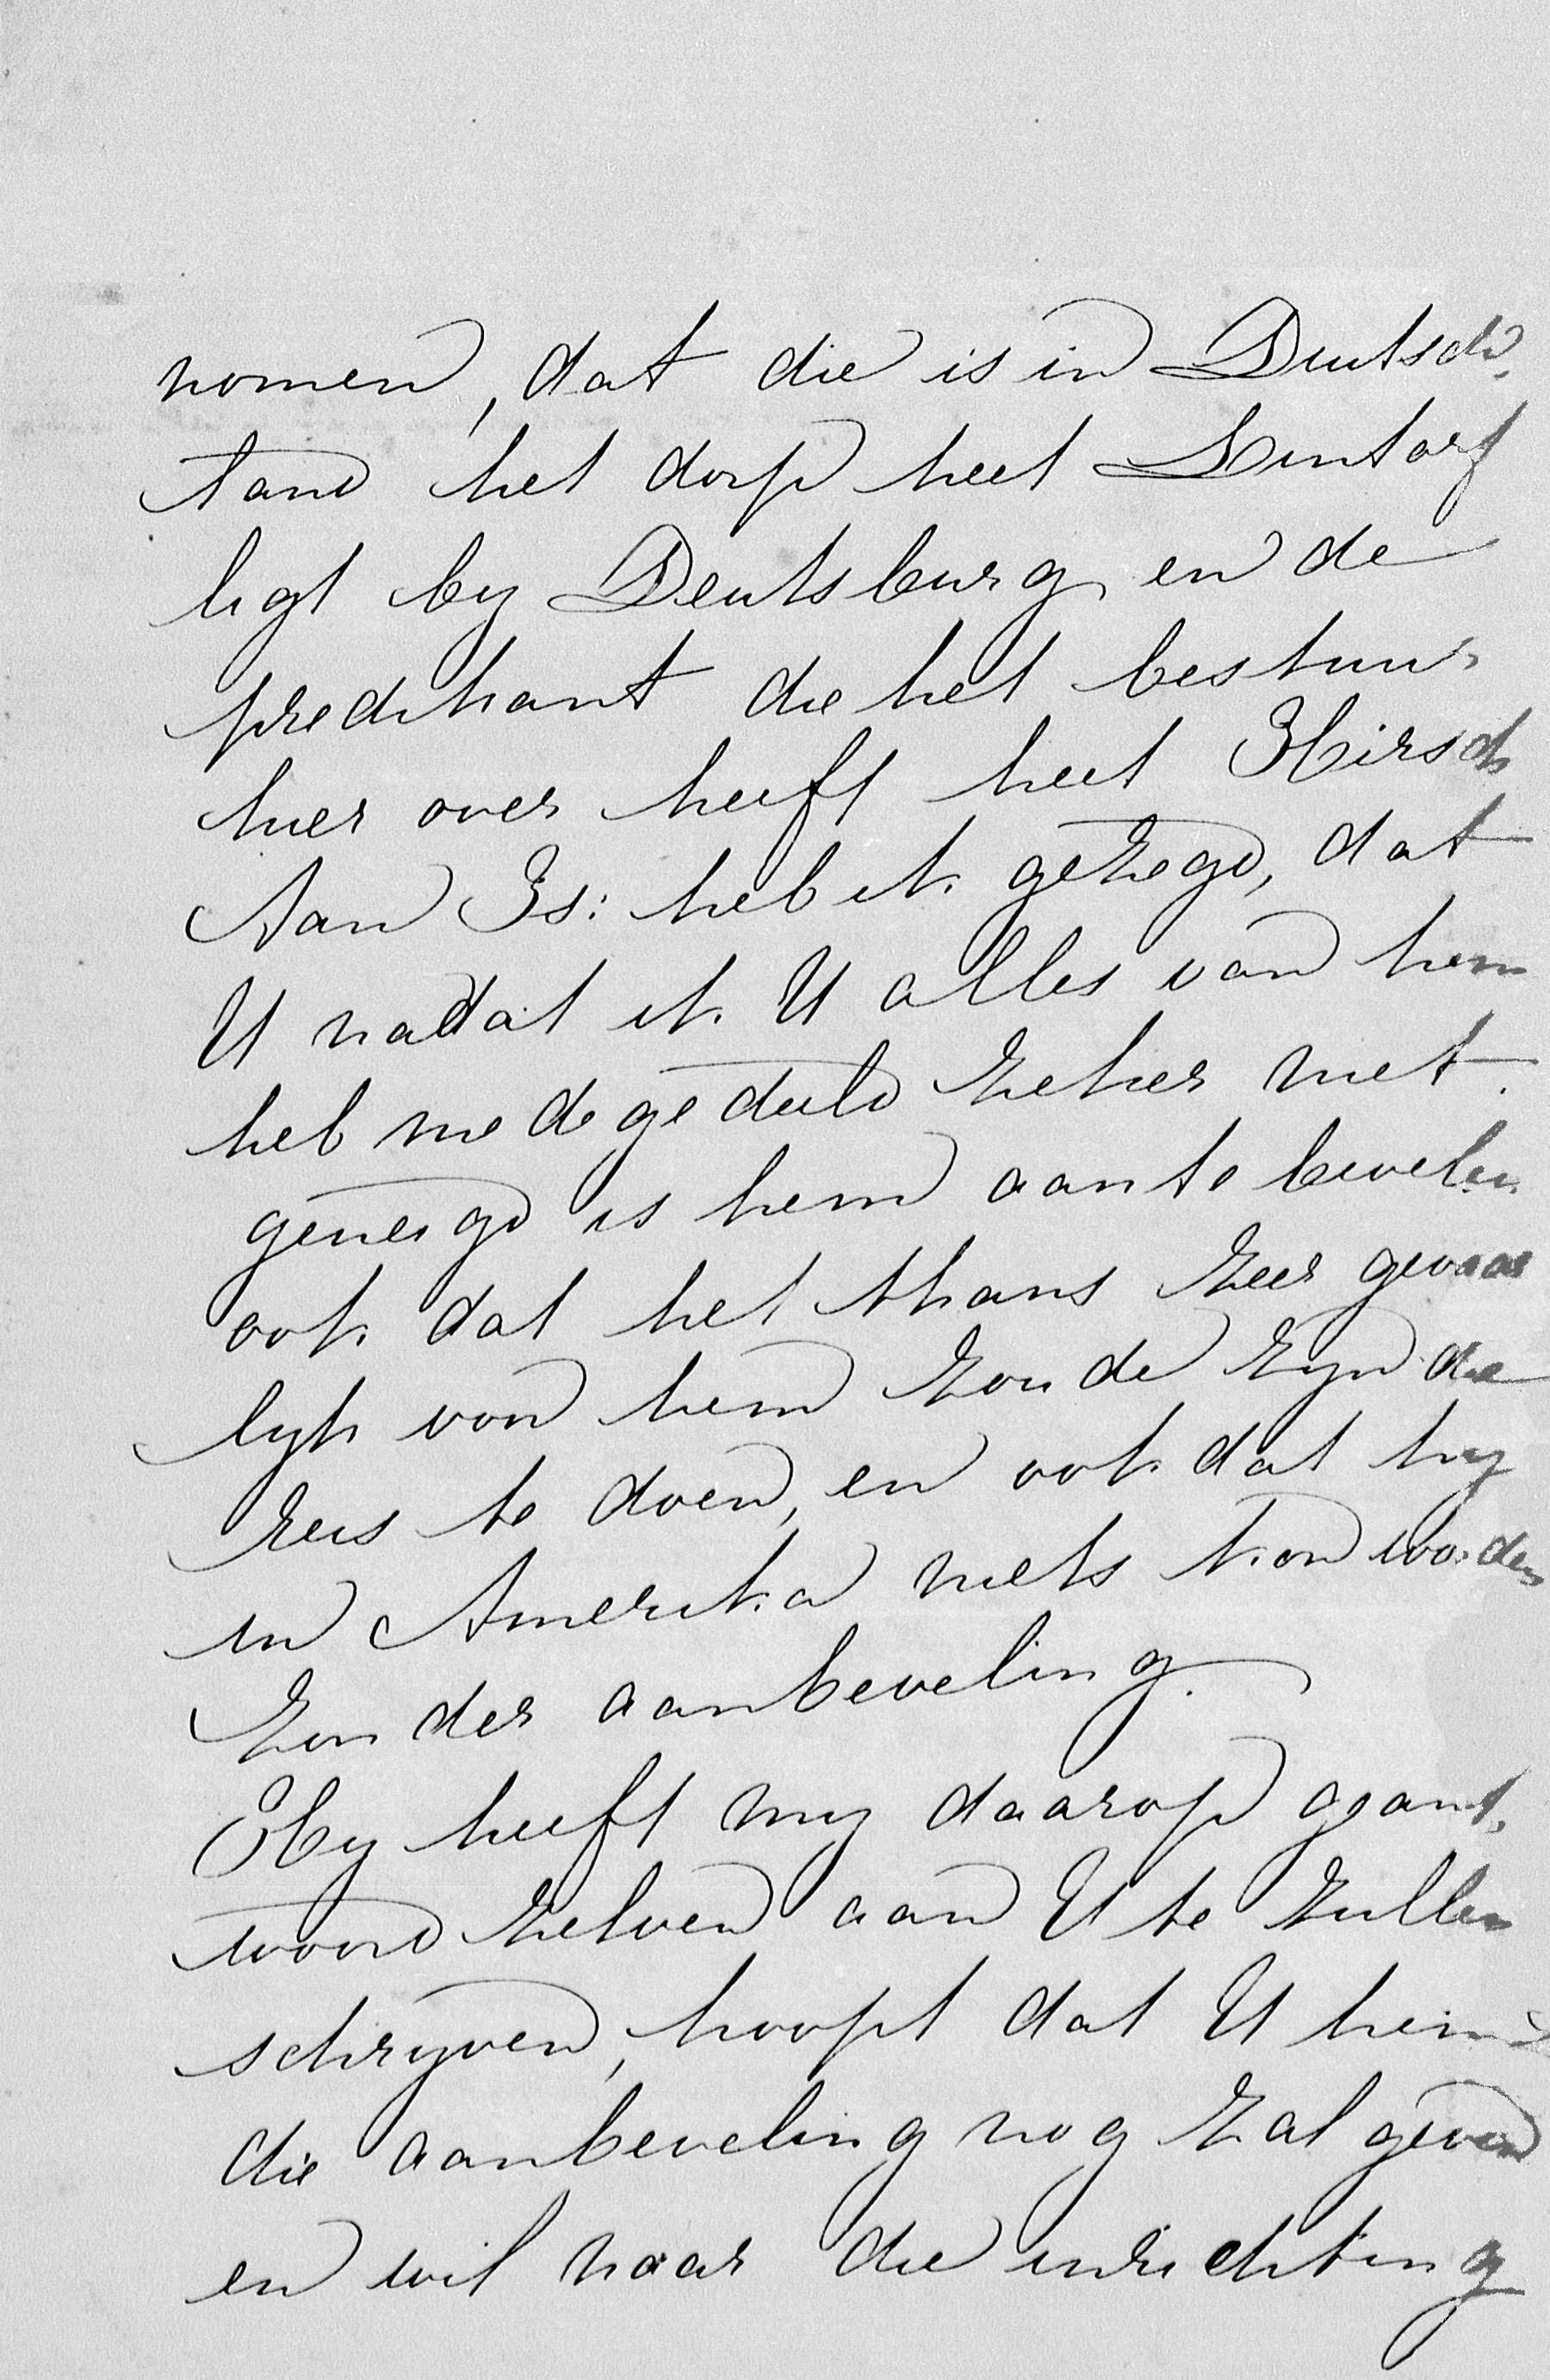 nomen, dat die is in Duitsch
land het dorp heet Lintorf
ligt by Deutsburg en de
predikant die het bestuur
hier over heeft heet Hirsch
Aan Is: heb ik gezegd, dat
U nadat ik U alles van hem
heb medegedeeld zeker niet
geneigd is hem aan te bevelen
ook dat het thans zeer gevaar
lyk von hem zoude zyn die
reis te doen, en ook dat hy
in Amerika niets kon worden
zonder aanbeveling.
Hy heeft my daarop geant,
woord zelven aan U te zullen
schryven, hoopt dat U hem
die aanbeveling nog zal geven
en wil naar die inrichting